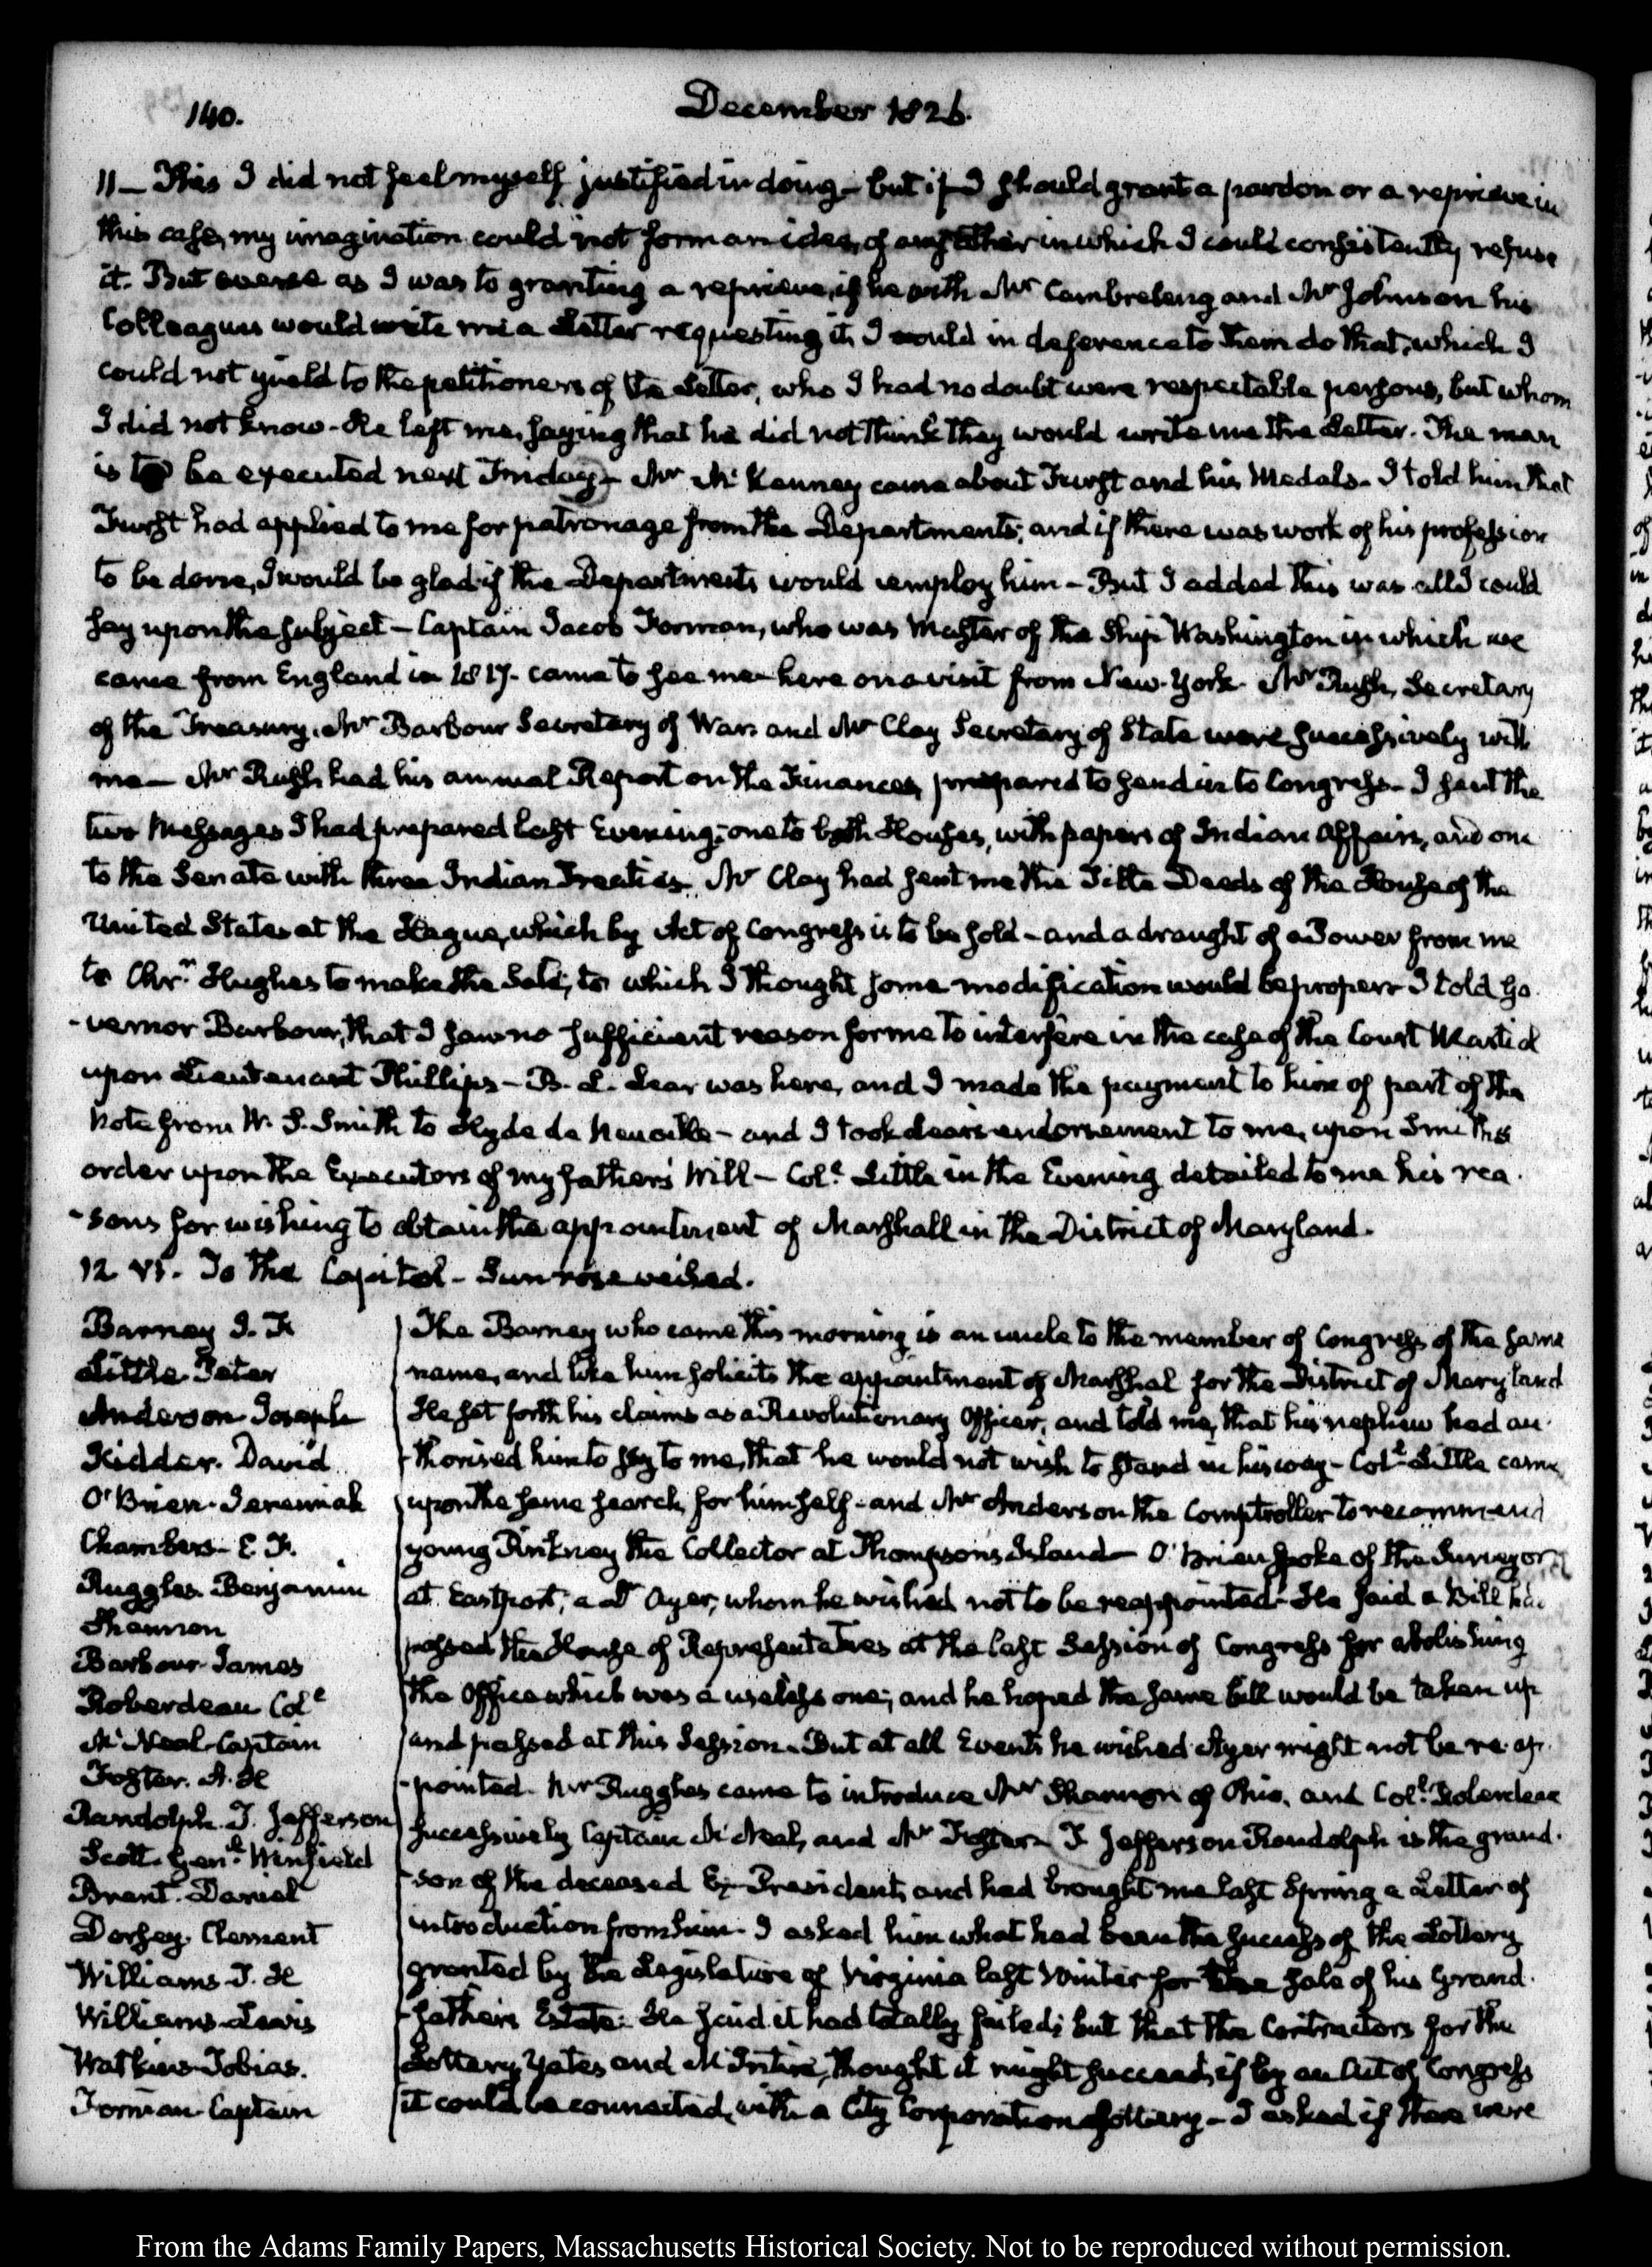 140.
December 1826.
11 — This I did not feel myself justified in doing — but if I should grant a pardon or a reprieve in
this case, my imagination could not form an idea, of any other in which I could consistently refuse
it. But averse as I was to granting a reprieve, if he with Mr Cambreleng and Mr Johnson his
Colleagues would write me a Letter requesting it, I would in deference to them do that, which I
could not yield to the petitioners of the Letter, who I had no doubt were respectable persons, but whom
I did not know. He left me, saying that he did not think they would write me the Letter. The man
is to be executed next Friday — Mr McKenney came about Furst and his Medals. I told him that
Furst had applied to me for patronage from the Departments; and if there was work of his profession
to be done, I would be glad if the Departments would employ him — But I added this was all I could
say upon the subject — Captain Jacob Forman, who was Master of the Ship Washington in which we
came from England in 1817. came to see me here on a visit from New-York. Mr Rush, Secretary
of the Treasury, Mr Barbour Secretary of War, and Mr Clay Secretary of State were successively with
me — Mr Rush had his annual Report on the Finances, prepared to send in to Congress — I sent the
two Messages I had prepared last Evening; one to both Houses, with papers of Indian Affairs, and one
to the Senate with three Indian Treaties. Mr Clay had sent me the Title Deeds of the House of the
United States at the Hague, which by Act of Congress is to be sold — and a draught of a Power from me
to Chr. Hughes to make the Sale; to which I thought some modification would be proper. I told Go-
-vernor Barbour, that I saw no sufficient reason for me to interfere in the case of the Court Martial
upon Lieutenant Phillips — B. L. Lear was here, and I made the payment to him of part of the
Note from W. S. Smith to Hyde de Neuville — and I took Lear's endorsement to me, upon Smith's
order upon the Executors of my father's Will — Coll. Little in the Evening detailed to me his rea-
-sons for wishing to obtain the appointment of Marshall in the District of Maryland.
12. VI. To the Capitol — Sun rose veiled.
Barney J. H
Little Peter
Anderson Joseph
Kidder. David
O'Brien. Jeremiah
Chambers — E. F.
Ruggles. Benjamin
Shannon
Barbour James
Roberdeau Coll
McNeal Captain
Foster. A. H
Randolph. T. Jefferson
Scott. Genl. Winfield
Brent. Daniel
Dorsey. Clement
Williams. T. H
Williams Lewis
Watkins Tobias.
Forman Captain
The Barney who came this morning is an uncle to the member of Congress of the same
name, and like him solicits the appointment of Marshal for the District of Maryland
He set forth his claims as a Revolutionary Officer, and told me, that his nephew had au-
-thorised him to say to me, that he would not wish to stand in his way — Coll. Little came
upon the same search, for himself — and Mr Anderson the Comptroller to recommend
young Pinkney the Collector at Thompson's Island — O'Brien spoke of the Surveyor
at Eastport, a Dr Ayer, whom he wished not to be reappointed — He said a Bill had
passed the House of Representatives at the last Session of Congress for abolishing
the Office which was a useless one; and he hoped the same bill would be taken up
and passed at this Session. But at all Events he wished Ayer might not be re-ap-
-pointed. Mr Ruggles came to introduce Mr Shannon of Ohio, and Coll. Roberdeau
successively Captain McNeal, and Mr Foster — T. Jefferson Randolph is the grand-
-son of the deceased Ex-President, and had brought me last Spring a Letter of
introduction from him — I asked him what had been the success of the Lottery
granted by the Legislature of Virginia last Winter for the sale of his Grand-
-father's Estate. He said it had totally failed; but that the Contractors for the
Lottery, Yates and McIntire, thought it might succeed, if by an Act of Congress
it could be connected, with a City Corporation Lottery — I asked if there were
From the Adams Family Papers, Massachusetts Historical Society. Not to be reproduced without permission.